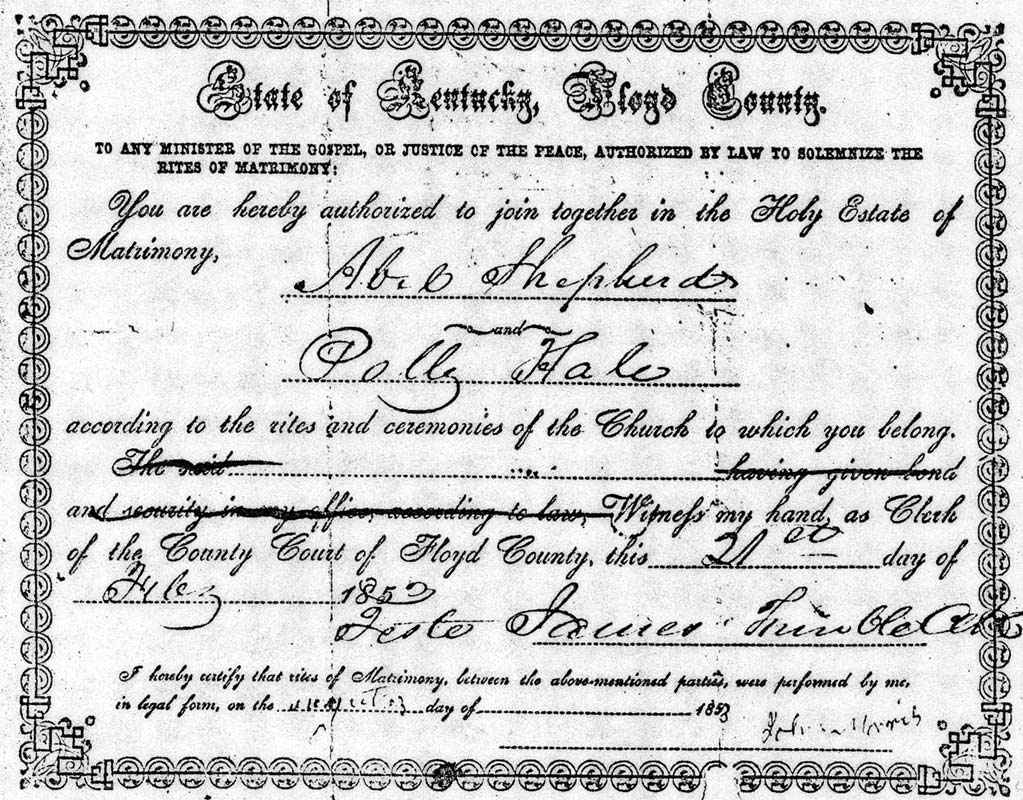 State of Kentucky, Floyd County.
TO ANY MINISTER OF THE GOSPEL, OR JUSTICE OF THE PEACE, AUTHORIZED BY LAW TO SOLEMNIZE THE
RITES OF MATRIMONY:
You are hereby authorized to join together in the Holy Estate of
Matrimony,
Abel Shepherd
and
Polly Hale
according to the rites and ceremonies of the Church to which you belong.
The said having given bond
and security in my office, according to law, Witness my hand, as Clerk
of the County Court of Floyd County, this 21st day of
July 1853
Teste James Trimble Clk
I hereby certify that rites of Matrimony, between the above-mentioned parties, were performed by me,
in legal form, on the day of 1853